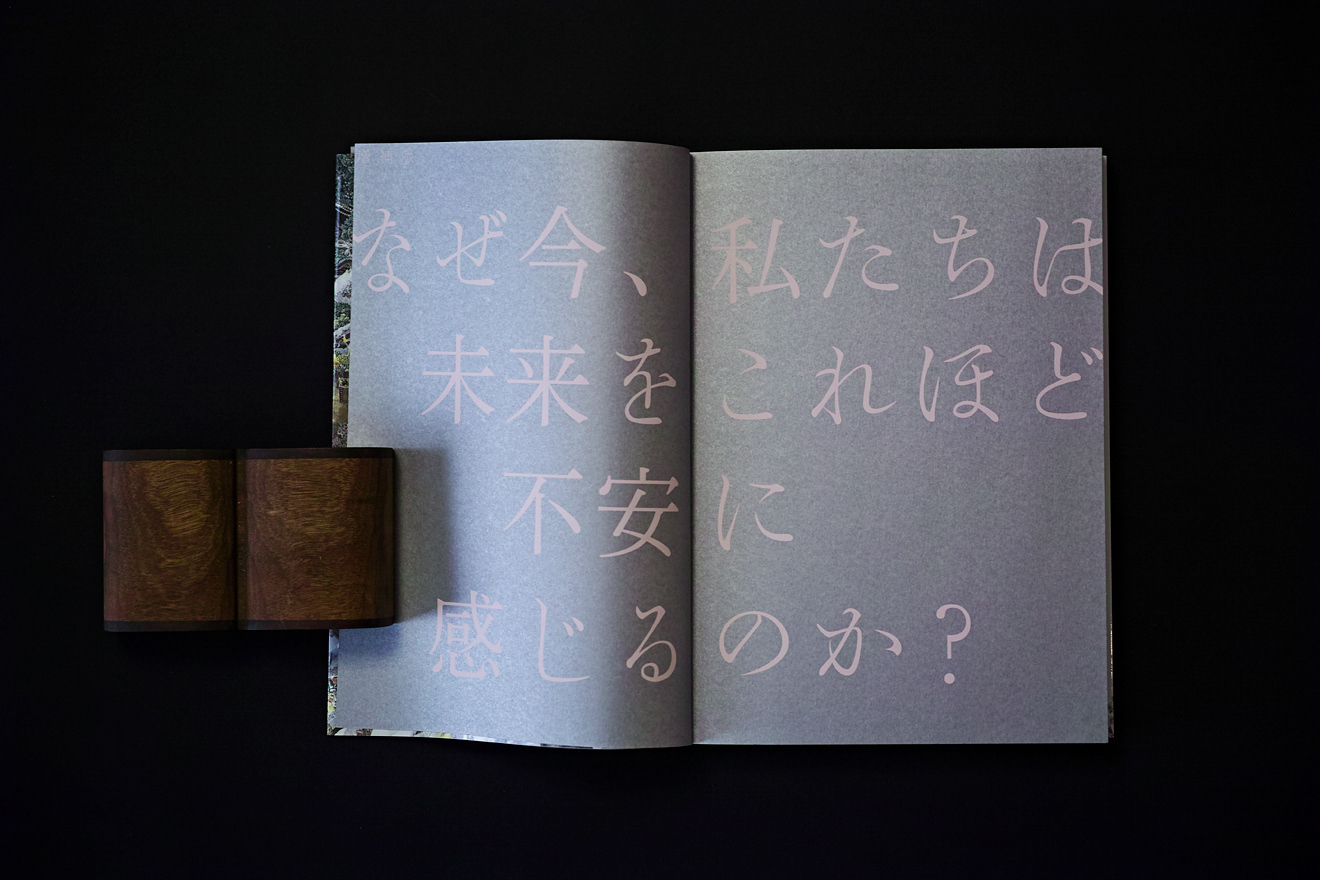 なぜ今、私たちは
未来をこれほど
不安に
感じるのか?